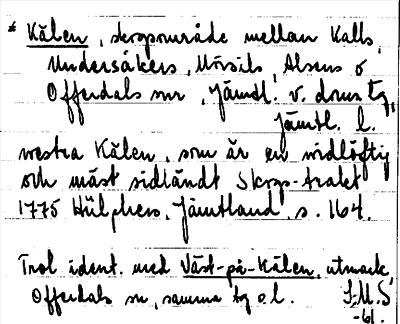 * Kälen, skogsområde mellan Kalls,
Undersåkers, Mörsils, Alsens o
Offerdals snr, Jämtl. v. doms tg,
Jämtl. l.
westra Kälen, som är en widlöftig
och mäst sidländt Skogs-trakt
1775 Hülphers, Jämtland, s. 164.
Trol. ident. med Väst-på-Kälen, utmark,
Offerdals sn, samma tg o. l. S.M.S
-61.